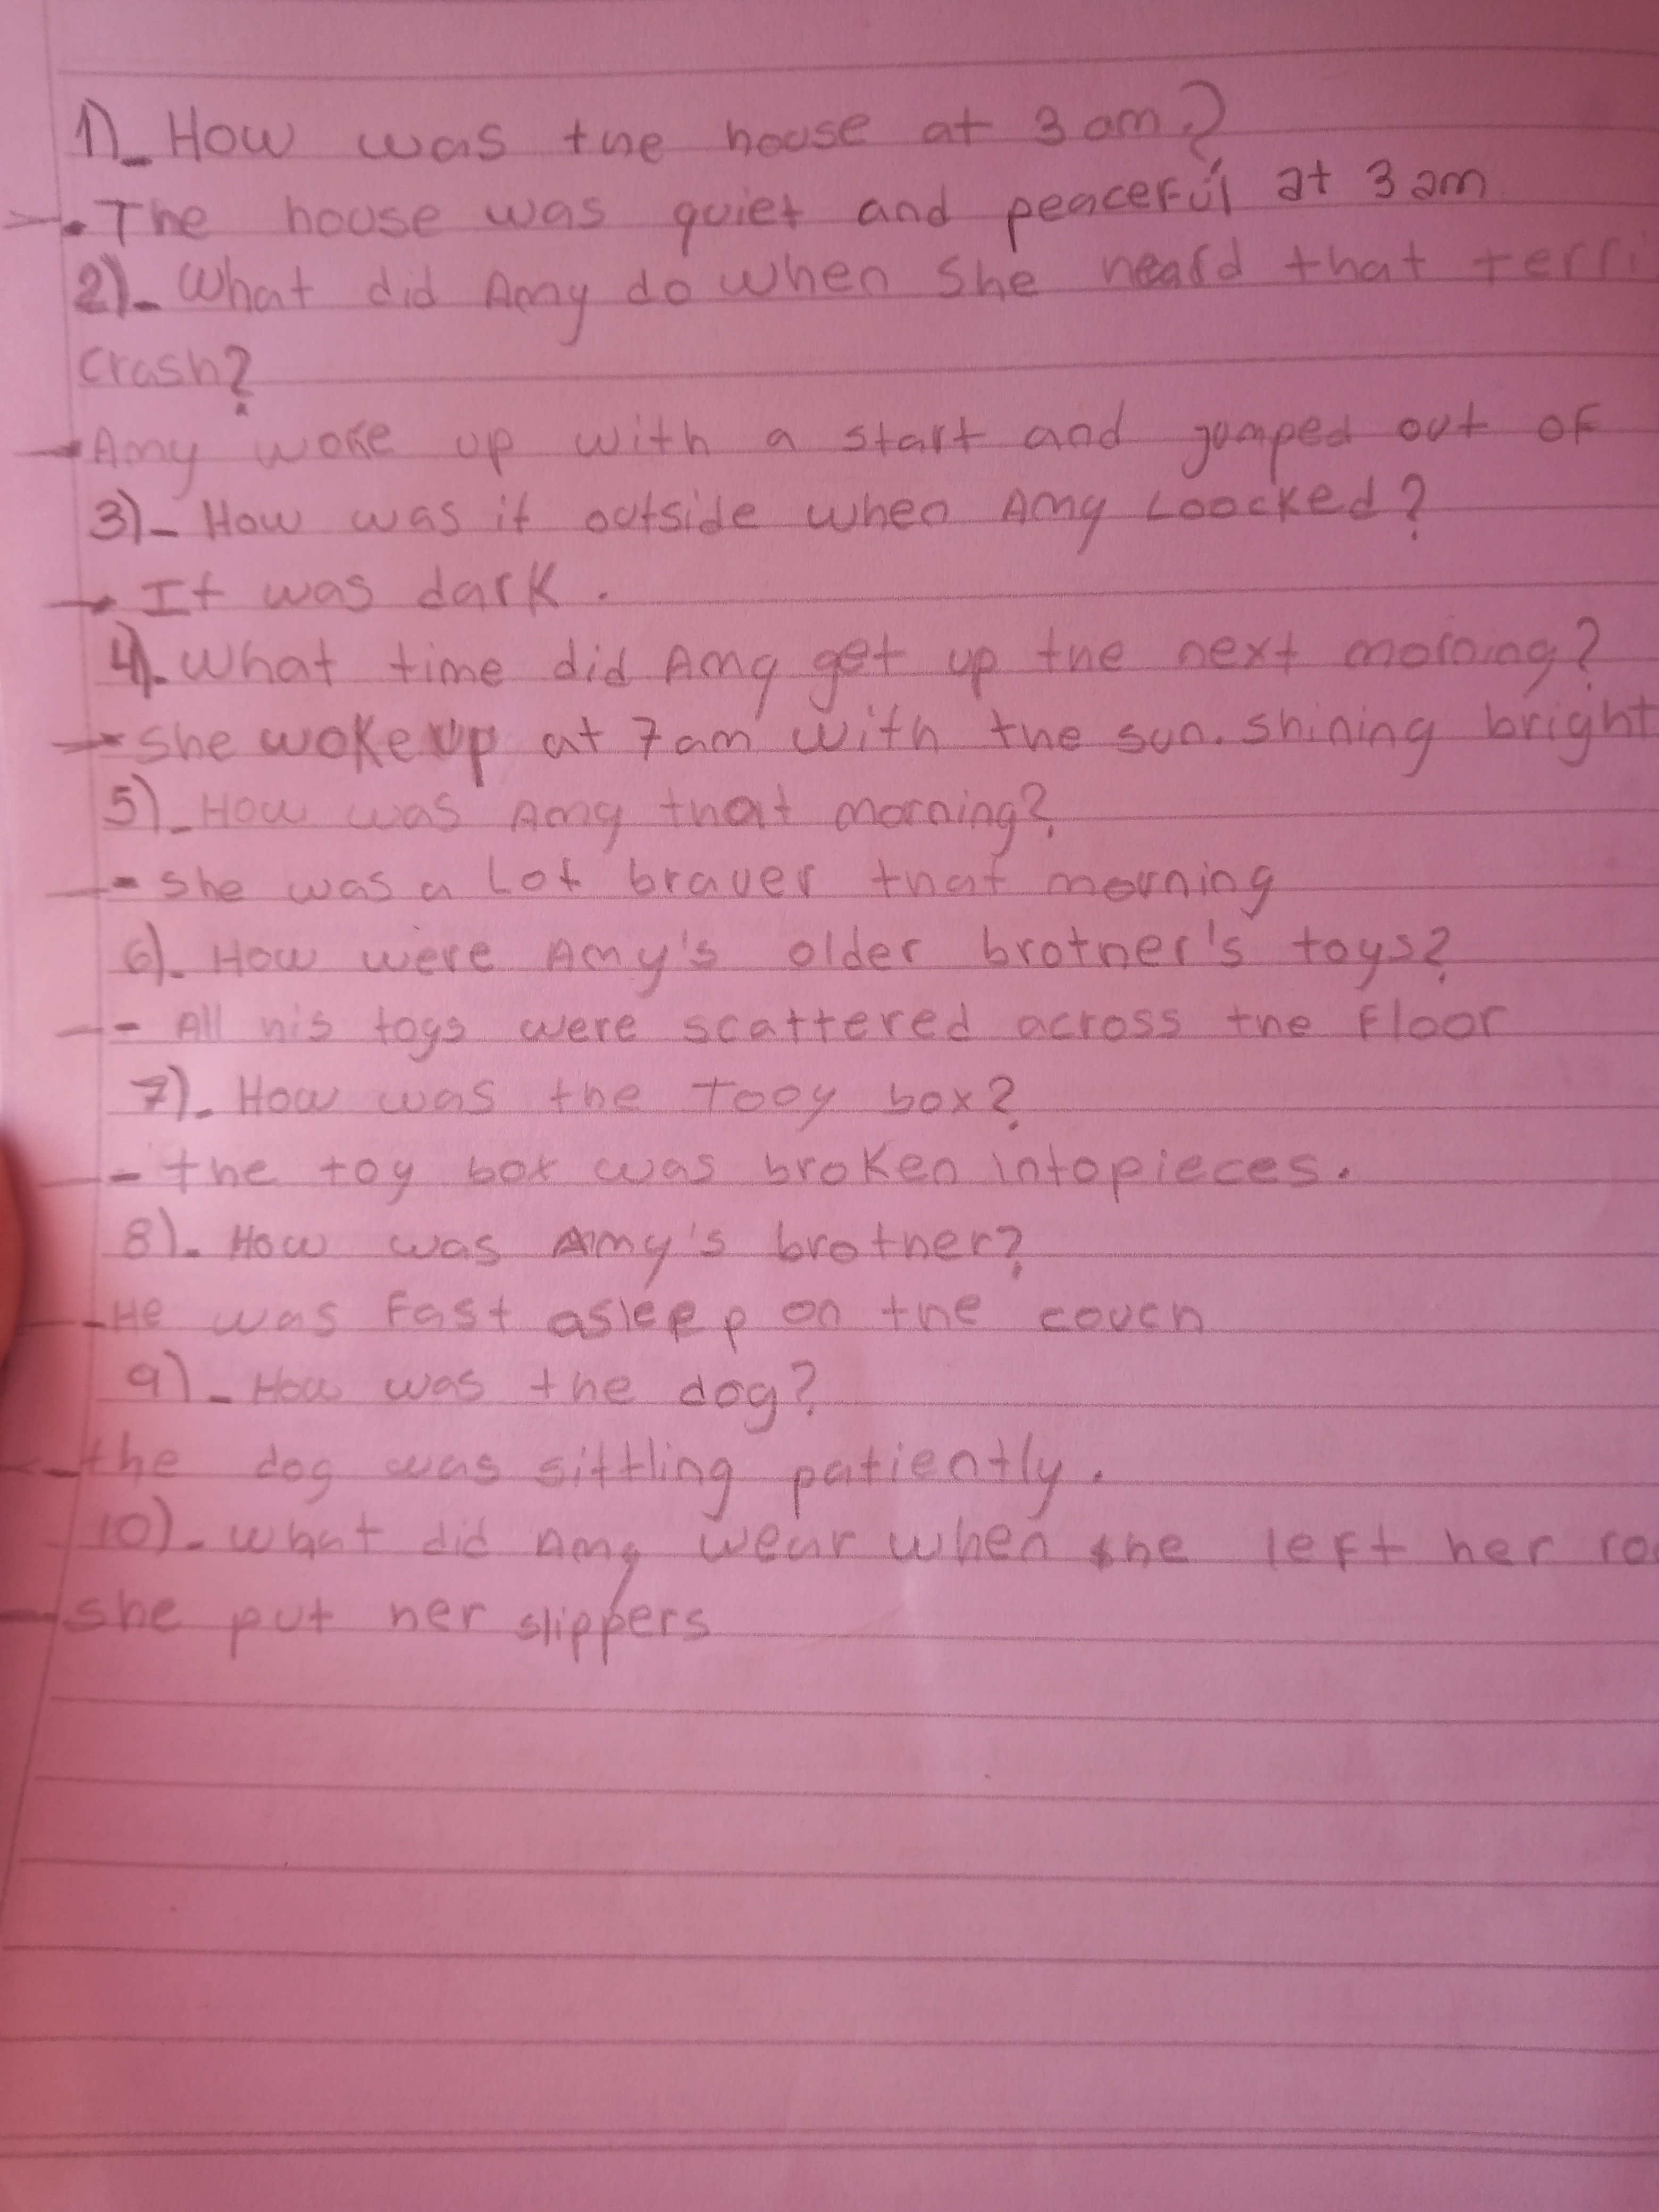 1)_ How was the house at 3 am?
- The house was quiet and peaceful at 3 am
2)_ What did Amy do when She heard that terri
crash?
- Amy woke up with a start and jumped out of
3)_ How was it outside when Amy Loocked?
- It was dark.
4)_ What time did Amy get up the next morning?
- she woke up at 7 am with the sun. shining bright
5)_ How was Amy that morning?
- she was a Lot braver that morning
6)_ How were Amy's older brother's toys?
- All his toys were scattered across the Floor
7)_ How was the Tooy box?
- the toy box was broken into pieces.
8)_ How was Amy's brother?
- He was Fast asleep on the couch
9)_ How was the dog?
- the dog was sittling patiently.
10)_ What did Amy wear when she left her ro
- she put her slippers